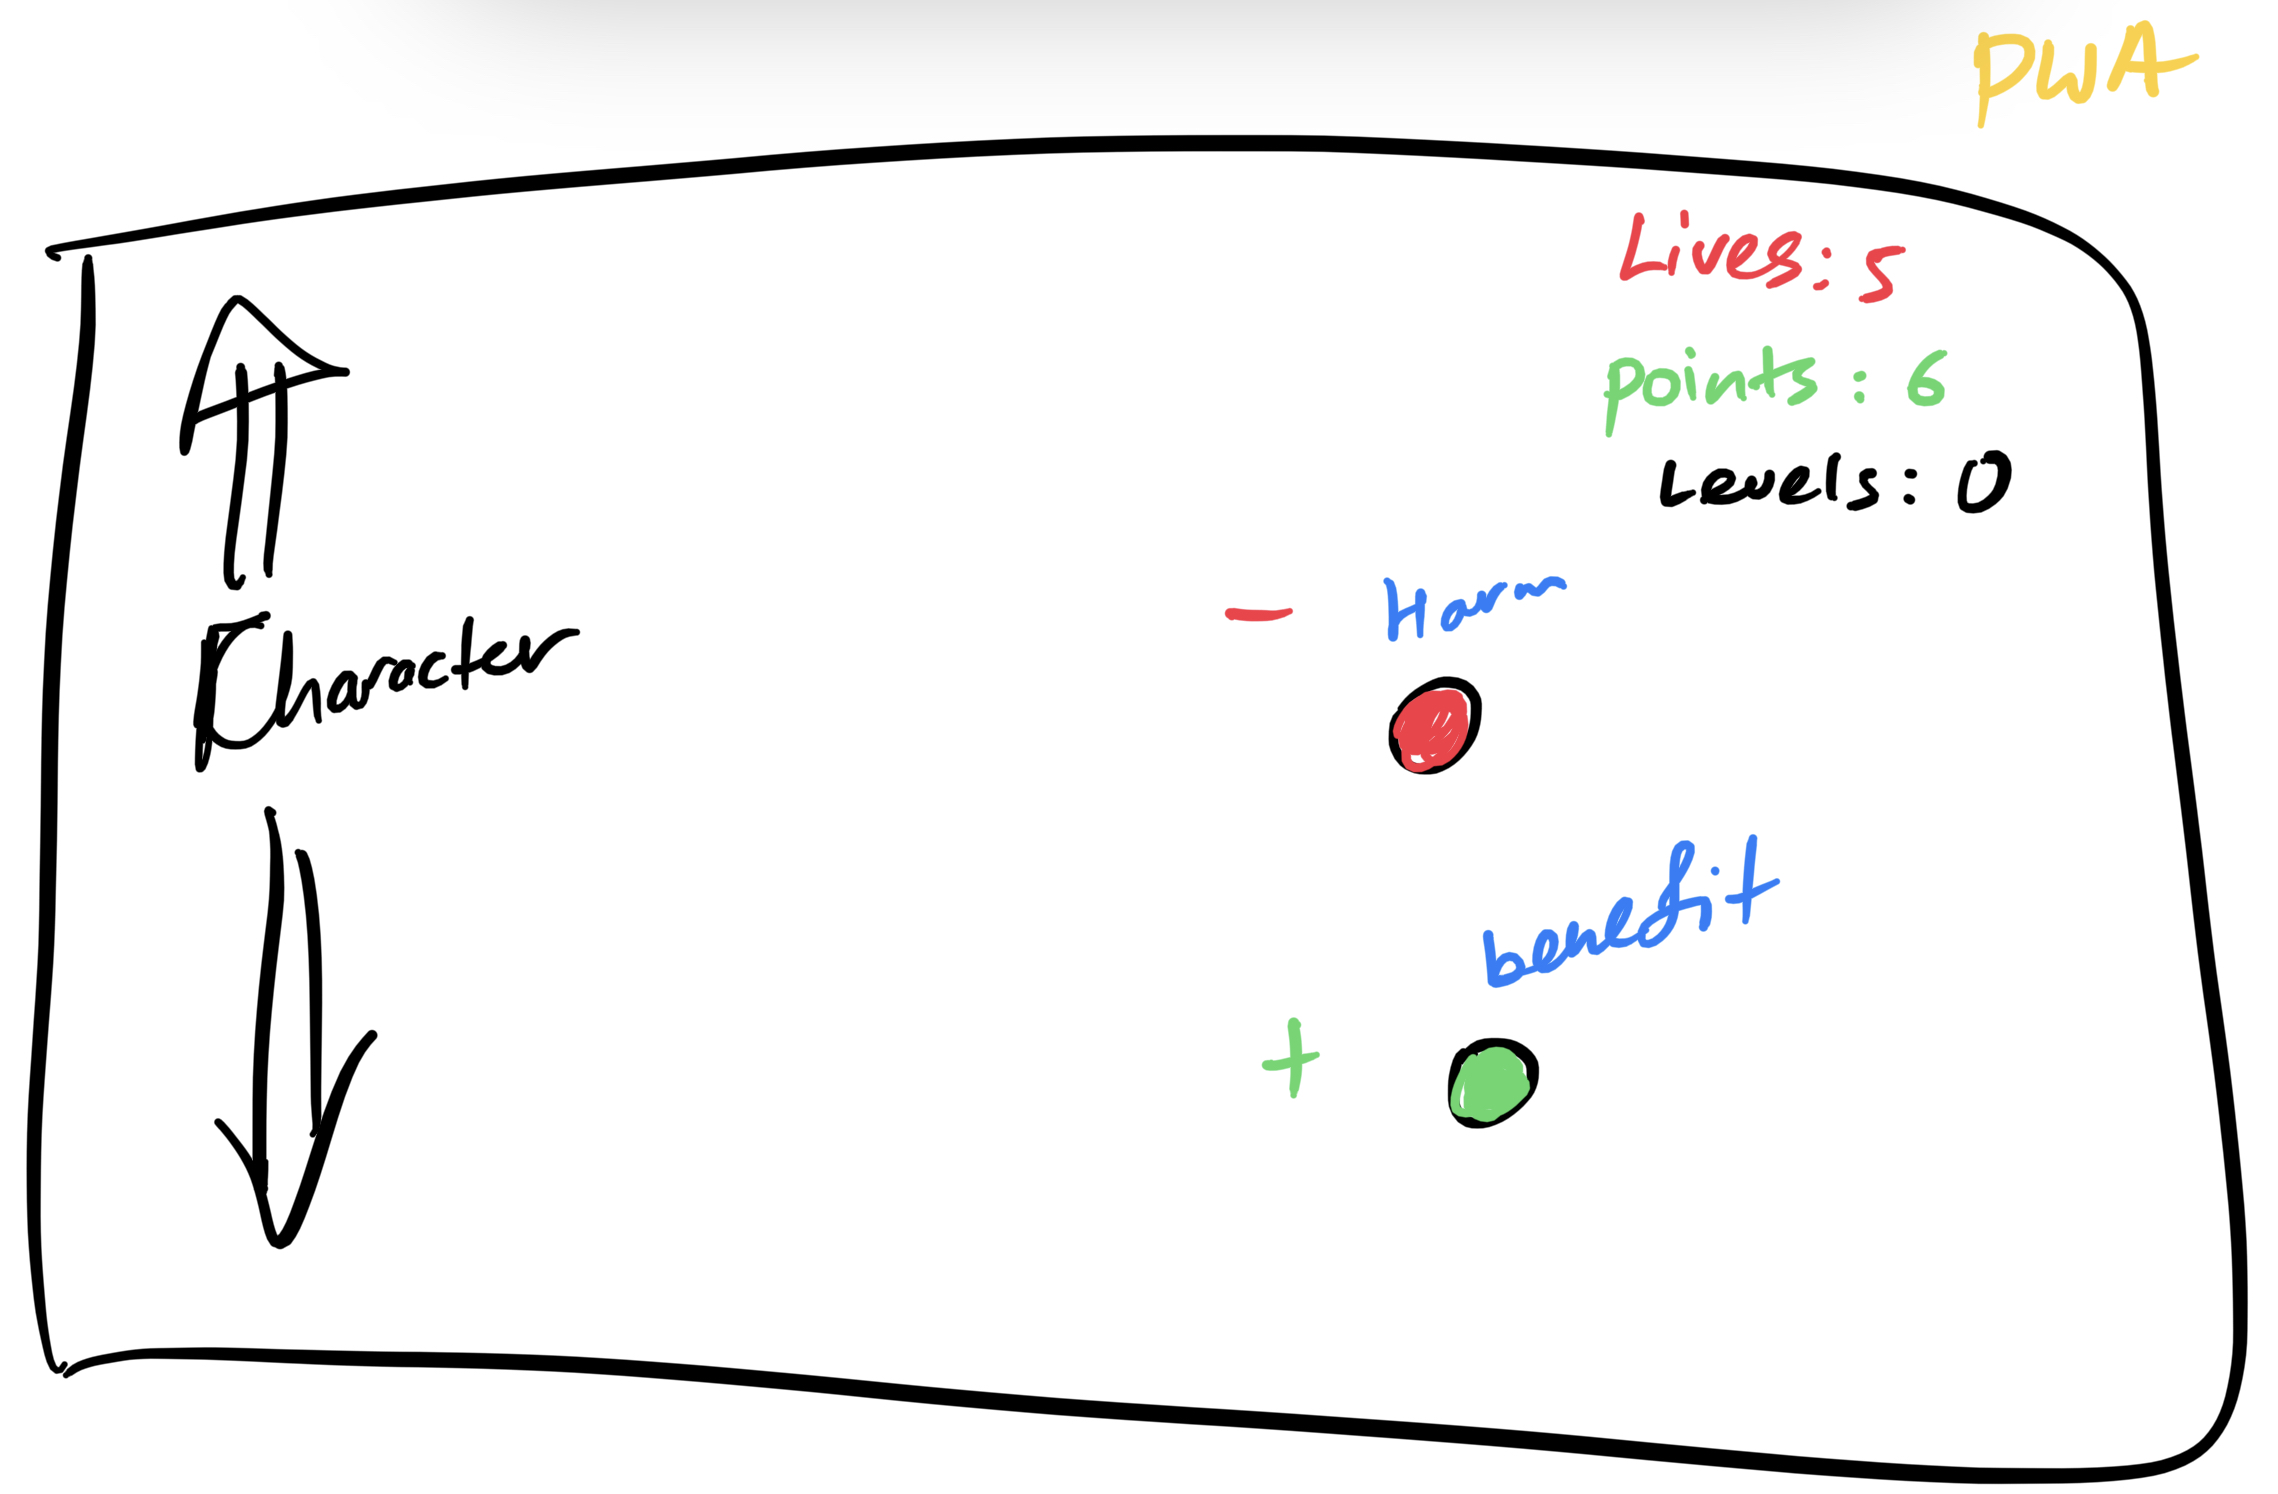 PWA
Lives: 5
points: 6
Levels: 0
- Harm
Character
benefit
+